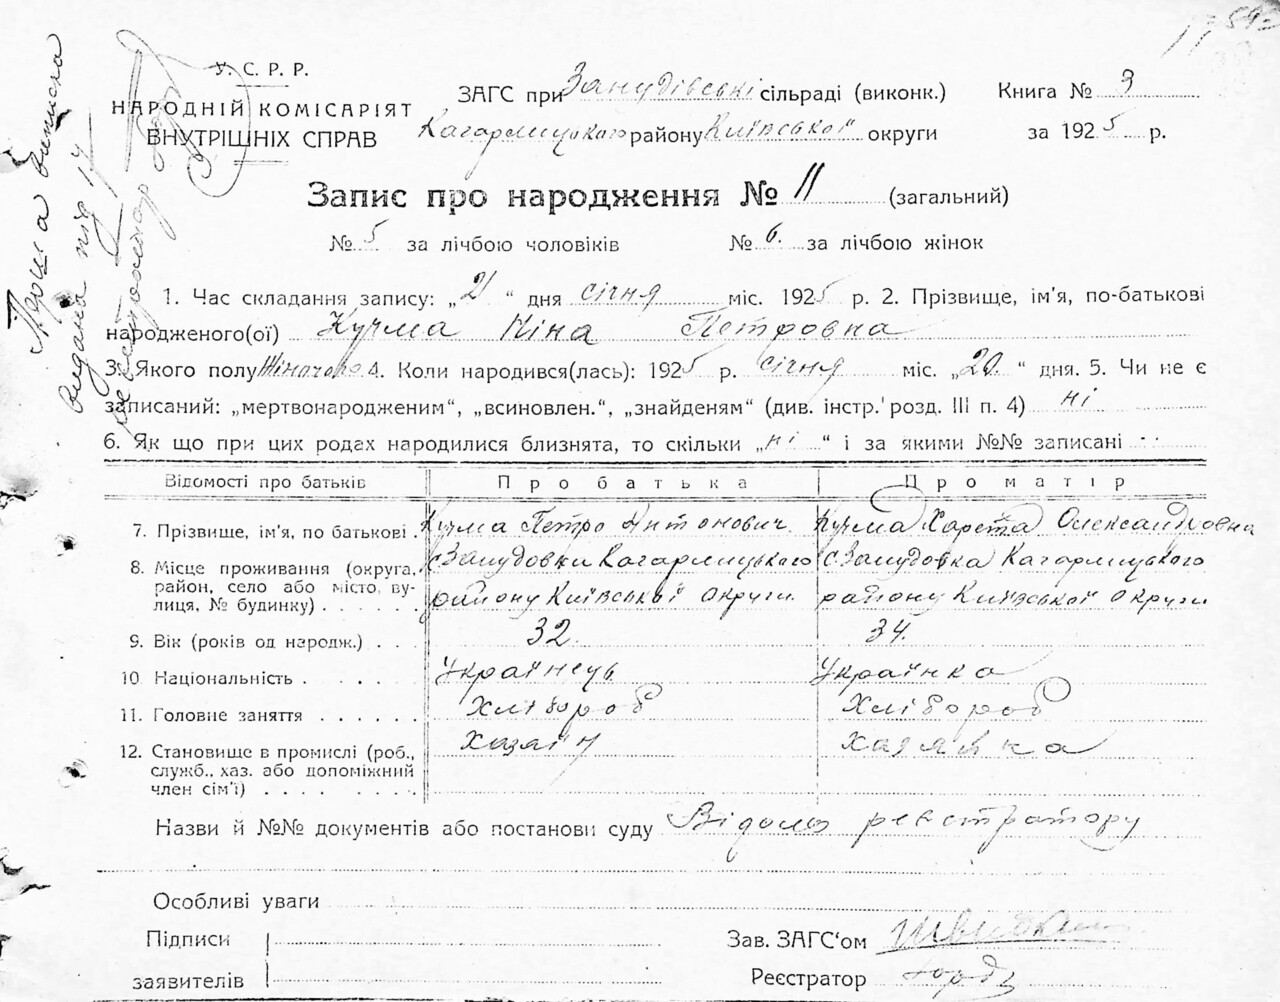 У. С. Р. Р.
НАРОДНІЙ КОМІСАРІЯТ
ВНУТРІШНІХ СПРАВ
ЗАГС при сільраді (виконк.) Книга № 3
Кагарлицького району Київської округи за 1925 р.
Запис про народження № 11 (загальний)
№ 5 за лічбою чоловіків № 6. за лічбою жінок
1. Час складання запису: „21 “ дня січня міс. 1925 р. 2. Прізвище, ім'я, по-батькові
народженого(ої) Кучма Ніна Петровна
3. Якого полу Жіночого 4. Коли народився(лась): 1925 р. січня міс. „20. “ дня. 5. Чи не є
записаний: „мертвонародженим“, „всиновлен.“, „знайденям“ (див. інстр. розд. III п. 4) ні
6. Як що при цих родах народилися близнята, то скільки „ні “ і за якими №№ записані
Відомості про батьків Про батька Про матір
7. Прізвище, ім'я, по батькові . Кучма Петро Антонович. Кучма Олександровна
8. Місце проживання (округа, район, село або місто, вулиця, № будинку) . . . . . . Кагарлицького району Київської округи. Кагарлицького району Київської округи
9. Вік (років од народж.) . . . 32. 34.
10. Національність . . . . . . Українець Українка
11. Головне заняття . . . . . . Хлібороб Хлібороб
12. Становище в промислі (роб., служб., хаз. або допоміжний член сім'ї) . . . . . . . . Хазяїн Хазяйка
Назви й №№ документів або постанови суду Відомо реєстратору
Особливі уваги
Підписи
заявителів
Зав. ЗАГС‘ом
Реєстратор